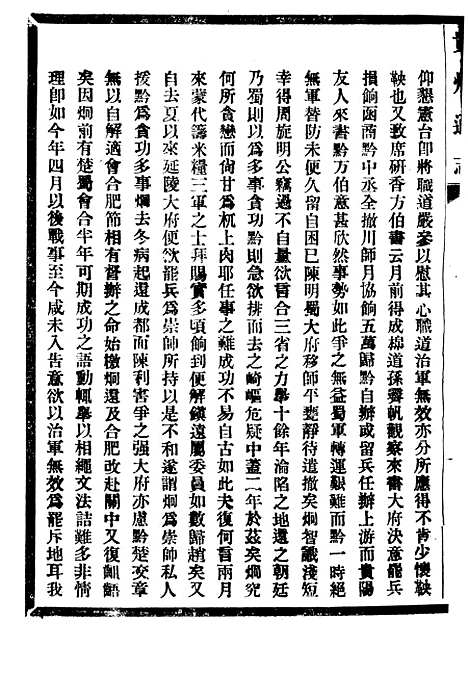 貴州通志
仰懇憲台卽將職道嚴參以慰其心職道治軍無效亦分所應得不肯少懷鞅
鞅也又致席研香方伯書云月前得成綿道孫霽帆觀察來書大府決意罷兵
損餉函商黔中丞全撤川師月協餉五萬歸黔自辦或留兵任辦上游而貴陽
友人來書黔方伯意甚欣然事勢如此爭之無益蜀軍轉運艱難而黔一時絕
無軍替防未便久留自困已陳明蜀大府移師平甕靜待遣撤矣烱智識淺短
幸得周旋明公竊過不自量欲晉合三省之力舉十餘年淪陷之地還之朝廷
乃蜀則以為多事貪功黔則急欲排而去之崎嶇危疑中蓋二年於茲矣烱究
何所貪戀而尙甘為杌上肉耶任事之難成功不易自古如此夫復何言兩月
來蒙代籌米糧三軍之士拜賜實多頃餉到便解鎮遠屬委員如數歸趙矣又
自去夏以來延陵大府便欲罷兵為崇師所持以是不和遂謂烱為崇師私人
援黔為貪功多事烱去冬病起還成都面陳利害爭之强大府亦慮黔楚交章
無以自解適會合肥節相有督辦之命始檄烱還及合肥改赴關中又復齟齬
矣因烱前有楚蜀會合半年可期成功之語動輒舉以相繩文法詰難多非情
理卽如今年四月以後戰事至今咸未入告意欲以治軍無效為罷斥地耳我